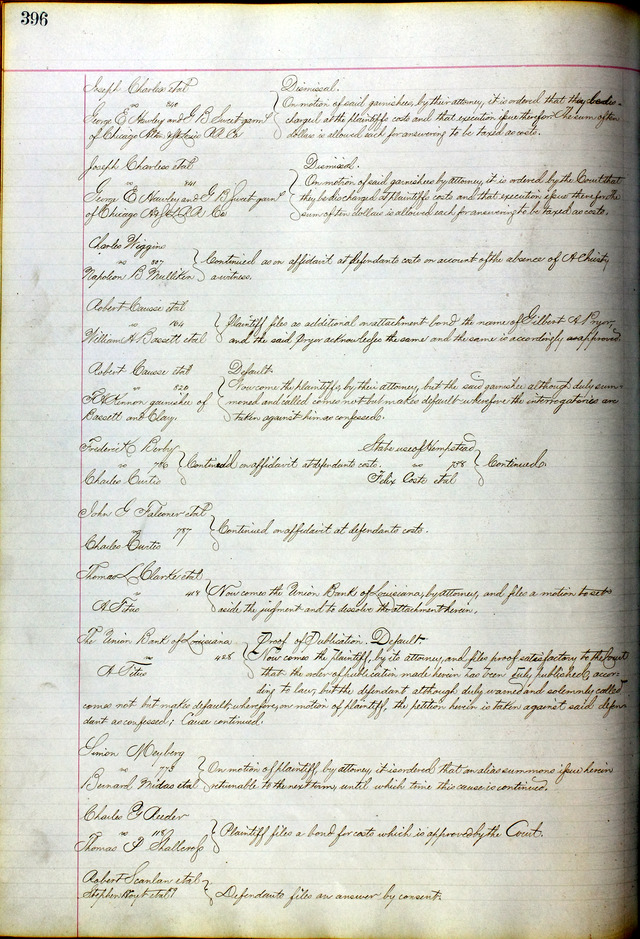 396
Joseph Charless etal
vs 240
George E Hawley and G B Sweet garnt
of Chicago Alton & St Louis R.R. Co
Dismissal.
On motion of said garnishees, by their attorney, it is ordered that they be dis-
charged at the plaintiffs costs and that execution issue therefor. The sum of ten
dollars is allowed each for answering to be taxed as costs.
Joseph Charless etal
vs 241
George E Hawley and G B Sweet garnt
of Chicago A & St L R.R. Co
Dismissal.
On motion of said garnishees by attorney, it is ordered by the Court that
they be discharged at Plaintiffs costs and that execution issue therefor the
sum of ten dollars is allowed each for answering to be taxed as costs.
Charles Wiggins
vs 327
Napoleon B Mulliken
Continued as on affidavit at defendants costs on account of the absence of A Christy
a witness.
Robert Causse etal
vs 164
William H Bassett etal
Plaintiff files as additional on attachment bond the name of Gilbert A Pryor,
and the said Pryor acknowledges the same and the same is accordingly approved.
Robert Causse etal
vs 520
garnishee of
Bassett and Clay.
Default.
Now come the plaintiffs, by their attorney, but the said garnishee although duly sum-
moned and called comes not but makes default wherefore the interrogatories are
taken against him as confessed.
Frederick Berby
vs 786
Charles Curtis
Continued on affidavit at defendants costs.
State use of Hempstead
vs 758
Felix Coste etal
Continued.
John G Falconer etal
vs 787
Charles Curtis
Continued on affidavit at defendants costs.
Thomas L Clarke etal
vs
A Titus
Now comes the Union Bank of Louisiana, by attorney, and files a motion to set
aside the judgment and to dissolve the attachment herein.
The Union Bank of Louisiana
vs 428
A Titus
Proof of Publication. Default
Now comes the plaintiff, by its attorney, and files proof satisfactory to the Court
that the order of publication made herein has been duly published, accor-
ding to law, but the defendant although duly warned and solemnly called
comes not but makes default; wherefore, on motion of plaintiff, the petition herein is taken against said defen-
dant as confessed; Cause continued.
Simon Meyberg
vs 773
Bernard Midas etal
On motion of plaintiff, by attorney, it is ordered that an alias summons issue herein
returnable to the next term, until which time this cause is continued.
Charles G Auder
vs
Thomas P Shallcross
Plaintiff files a bond for costs which is approved by the Court.
Robert Scanlan etal
Stephen Hoyt etal
Defendants files an answer by consent.